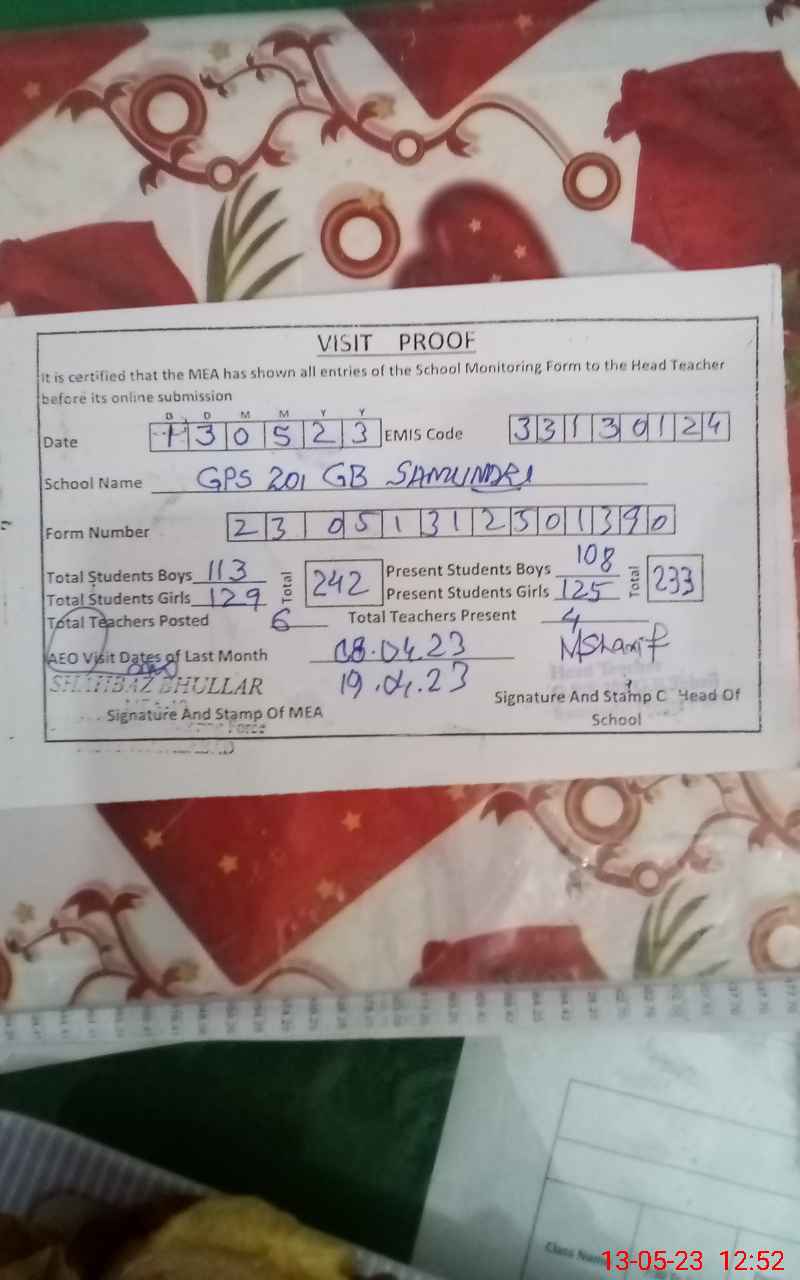 VISIT PROOF
It is certified that the MEA has shown all entries of the School Monitoring Form to the Head Teacher
before its online submission
D D M M Y Y
Date 1 3 0 5 2 3 EMIS Code 3 3 1 3 0 1 2 4
School Name GPS 201 GB SAMUNDRI
Form Number 2 3 0 5 1 3 1 2 5 0 1 3 9 0
Total Students Boys 113 Total 242 Present Students Boys 108 Total 233
Total Students Girls 129 Present Students Girls 125
Total Teachers Posted 6 Total Teachers Present 4
AEO Visit Dates of Last Month 08.04.23 MSharif
SHAHBAZ BHULLAR 19.04.23 Head Teacher
Signature And Stamp Of MEA Signature And Stamp Head Of
School
Force
Class Nam
13-05-23 12:52